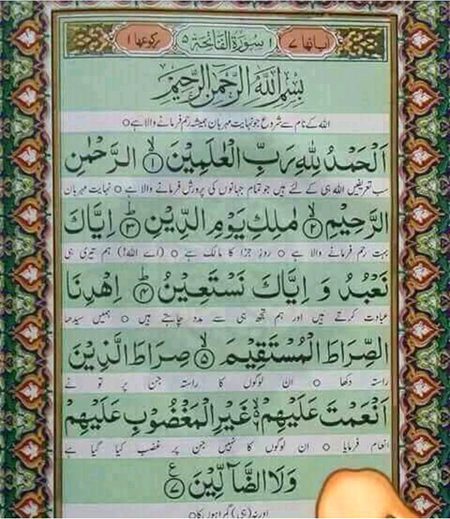 اٰیاتها ٧ ١ سُوْرَةُ الْفَاتِحَةِ ٥ رکوعها ١
بِسْمِ اللّٰهِ الرَّحْمٰنِ الرَّحِيْمِ
اللہ کے نام سے شروع جو نہایت مہربان ہمیشہ رحم فرمانے والا ہے ○
اَلْحَمْدُ لِلّٰهِ رَبِّ الْعٰلَمِيْنَ ۙ﴿١﴾ الرَّحْمٰنِ
سب تعریفیں اللہ ہی کے لئے ہیں جو تمام جہانوں کی پرورش فرمانے والا ہے ○ نہایت مہربان
الرَّحِيْمِ ۙ﴿٢﴾ مٰلِكِ يَوْمِ الدِّيْنِ ؕ﴿٣﴾ اِيَّاكَ
بہت رحم فرمانے والا ہے ○ روز جزا کا مالک ہے ○ (اے اللہ!) ہم تیری ہی
نَعْبُدُ وَ اِيَّاكَ نَسْتَعِيْنُ ؕ﴿٤﴾ اِهْدِنَا
عبادت کرتے ہیں اور ہم تجھ ہی سے مدد چاہتے ہیں ○ ہمیں سیدھا
الصِّرَاطَ الْمُسْتَقِيْمَ ۙ﴿٥﴾ صِرَاطَ الَّذِيْنَ
راستہ دکھا ○ ان لوگوں کا راستہ جن پر تو نے
اَنْعَمْتَ عَلَيْهِمْ ۙ۬ غَيْرِ الْمَغْضُوْبِ عَلَيْهِمْ
انعام فرمایا ○ ان لوگوں کا نہیں جن پر غضب کیا گیا ہے
وَلَا الضَّآلِّيْنَ ﴿٧﴾ ع
اور نہ (ہی) گمراہوں کا ○